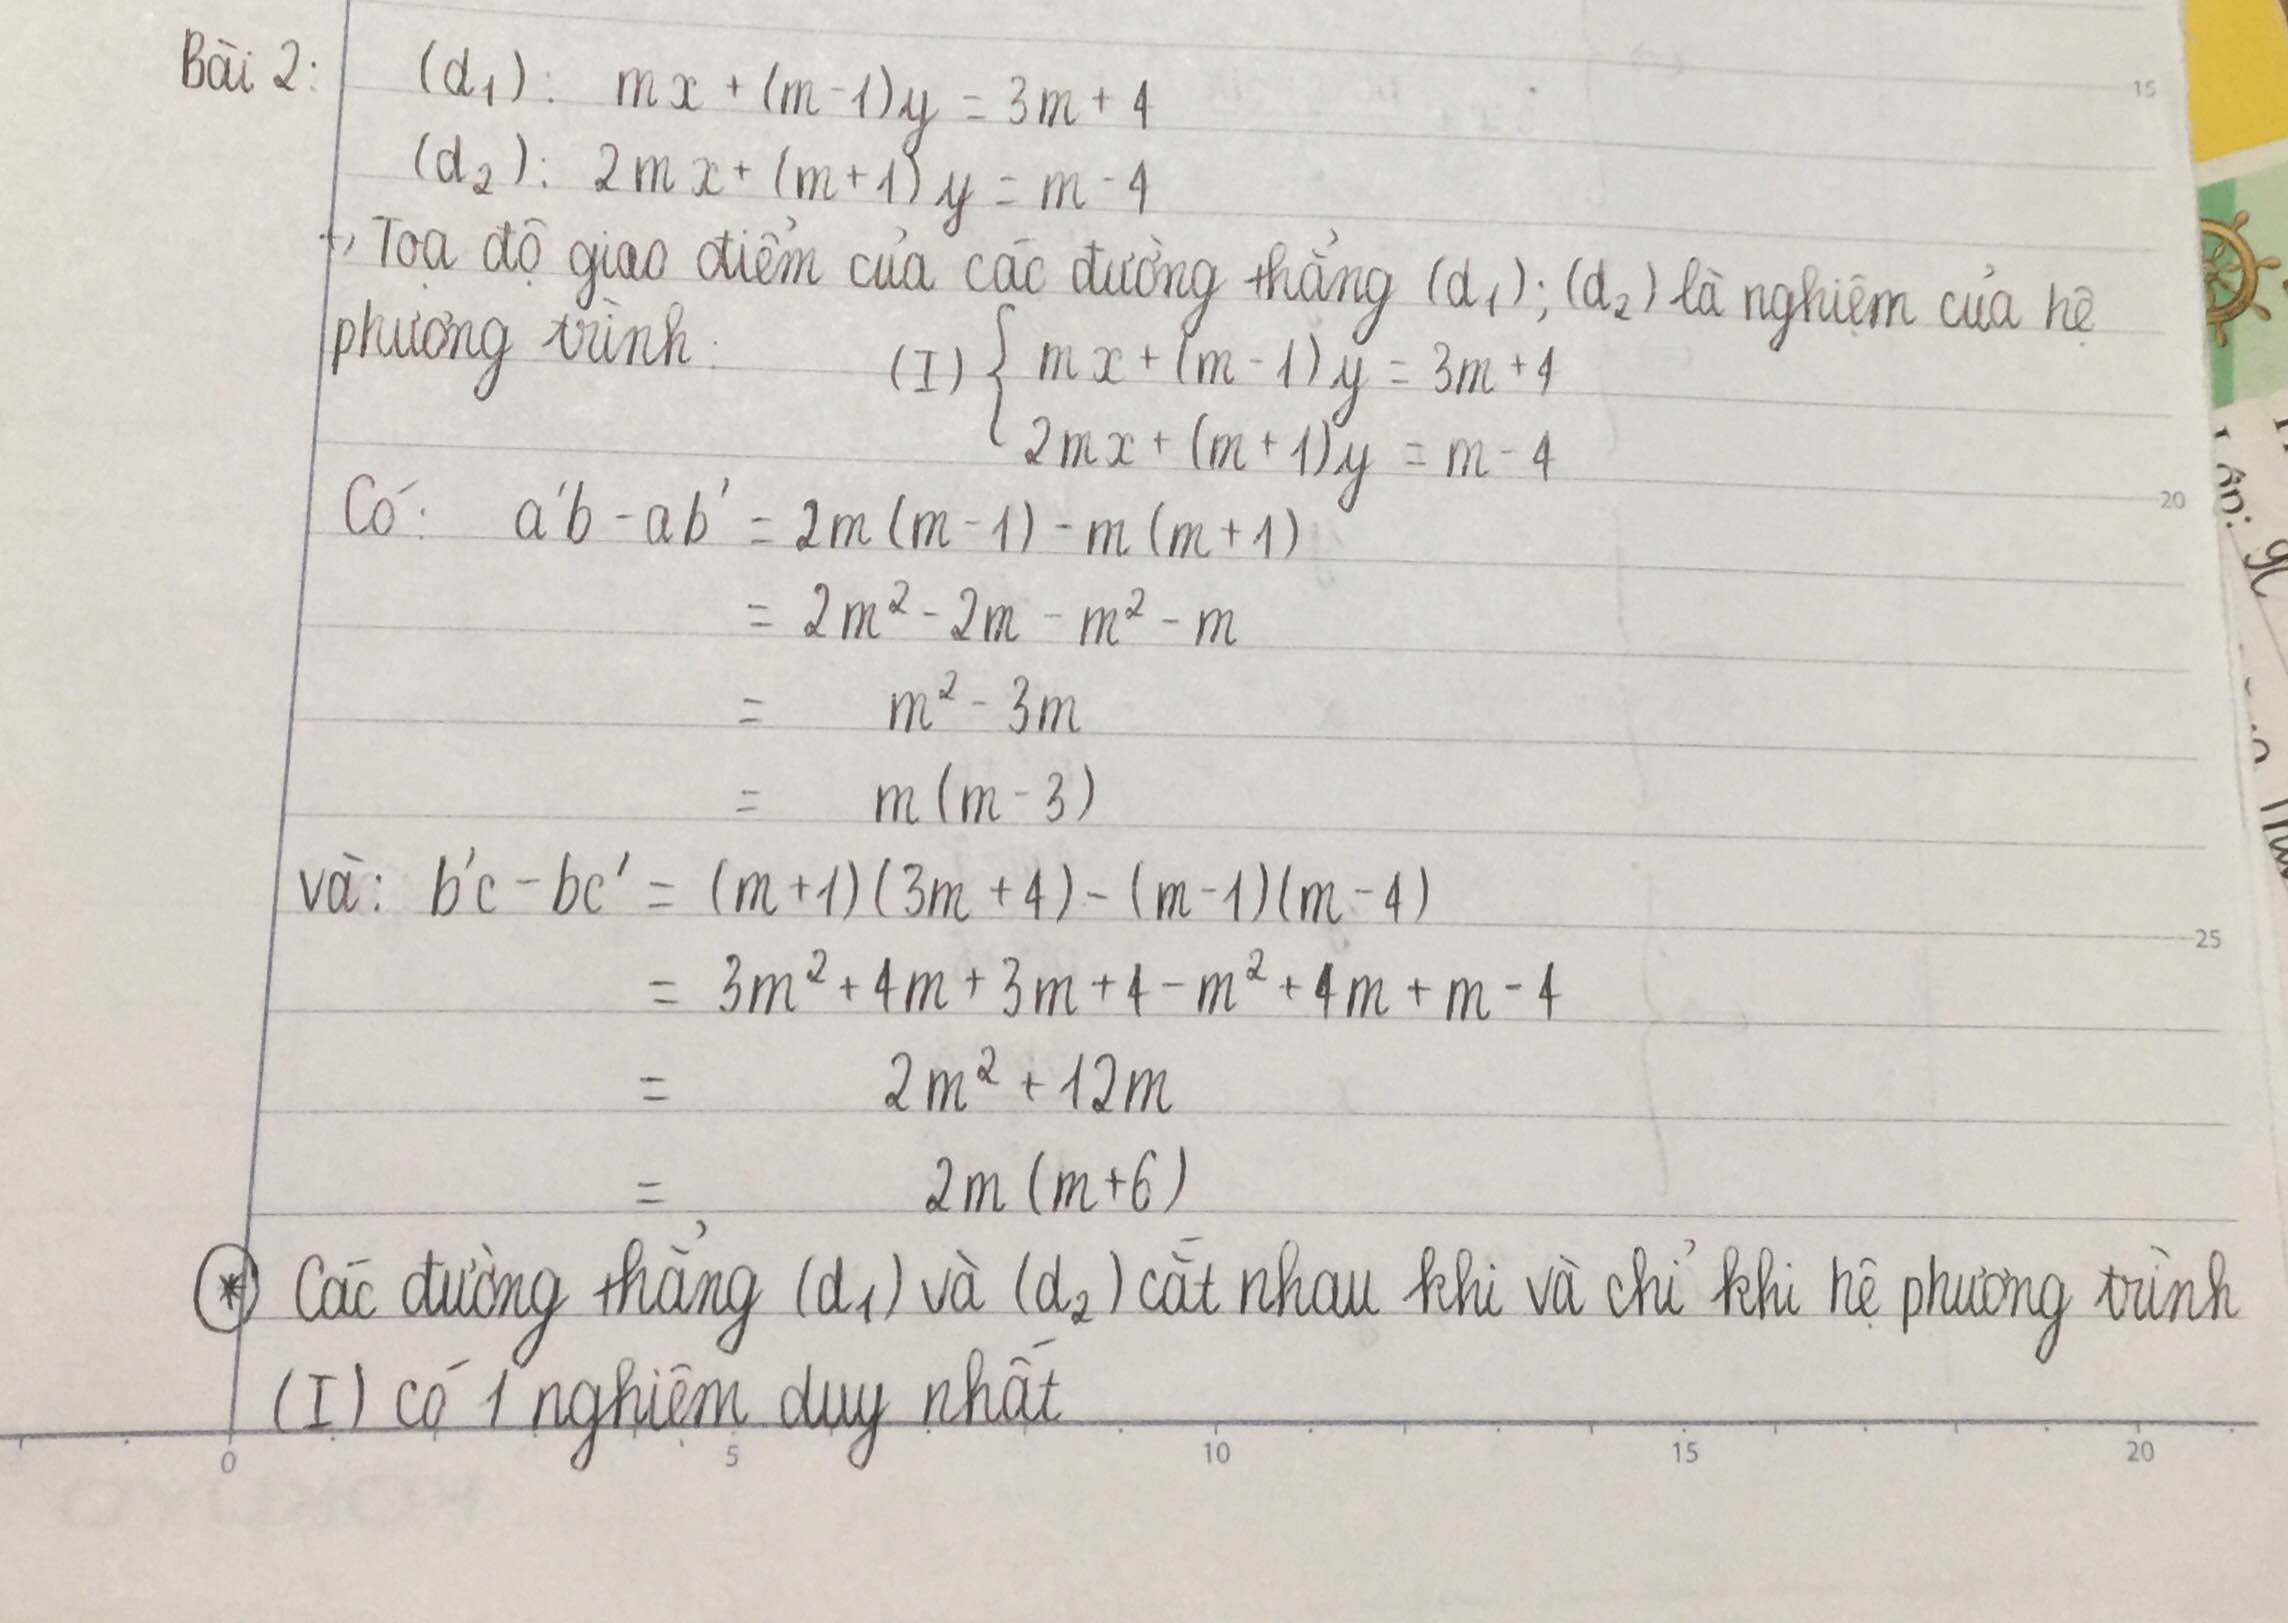 Bài 2: (d₁): mx + (m-1)y = 3m + 4
(d₂): 2mx + (m+1)y = m - 4
+, Toạ độ giao điểm của các đường thẳng (d₁); (d₂) là nghiệm của hệ
phương trình: (I) { mx + (m-1)y = 3m + 4
2mx + (m+1)y = m - 4
Có: a'b - ab' = 2m(m-1) - m(m+1)
= 2m² - 2m - m² - m
= m² - 3m
= m(m-3)
và: b'c - bc' = (m+1)(3m+4) - (m-1)(m-4)
= 3m² + 4m + 3m + 4 - m² + 4m + m - 4
= 2m² + 12m
= 2m(m+6)
(*) Các đường thẳng (d₁) và (d₂) cắt nhau khi và chỉ khi hệ phương trình
(I) có 1 nghiệm duy nhất
0 5 10 15 20
15
20
25